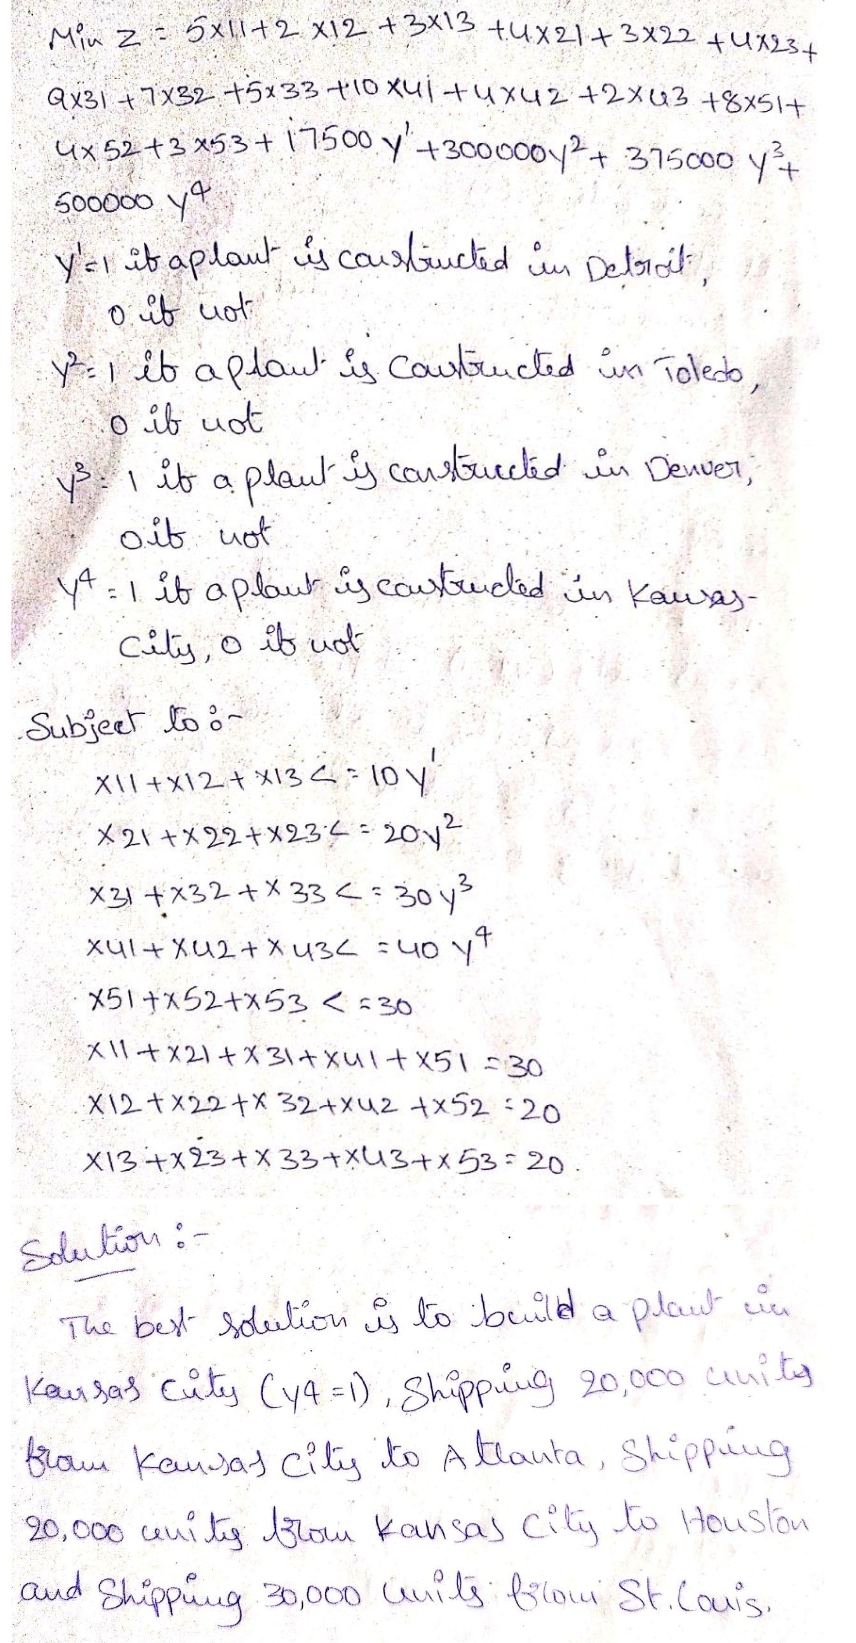 Min Z = 5x11+2 x12 +3x13 +4x21+3x22+4x23+
9x31+7x32+5x33+10x41+4x42+2x43+8x51+
4x52+3x53+17500 y¹+300000y²+ 375000 y³+
500000 y⁴
y¹=1 if a plant is constructed in Detroit,
0 if not
y²=1 if a plant is constructed in Toledo,
0 if not
y³=1 if a plant is constructed in Denver,
0 if not
y⁴=1 if a plant is constructed in Kansas-
City, 0 if not
Subject to :-
x11+x12+x13<=10y¹
x21+x22+x23<=20y²
x31+x32+x33<=30y³
x41+x42+x43<=40y⁴
x51+x52+x53<=30
x11+x21+x31+x41+x51=30
x12+x22+x32+x42+x52=20
x13+x23+x33+x43+x53=20.
Solution :-
The best solution is to build a plant in
Kansas City (y4=1), Shipping 20,000 units
from Kansas City to Atlanta, Shipping
20,000 units from Kansas City to Houston
and Shipping 30,000 units from St. Louis.